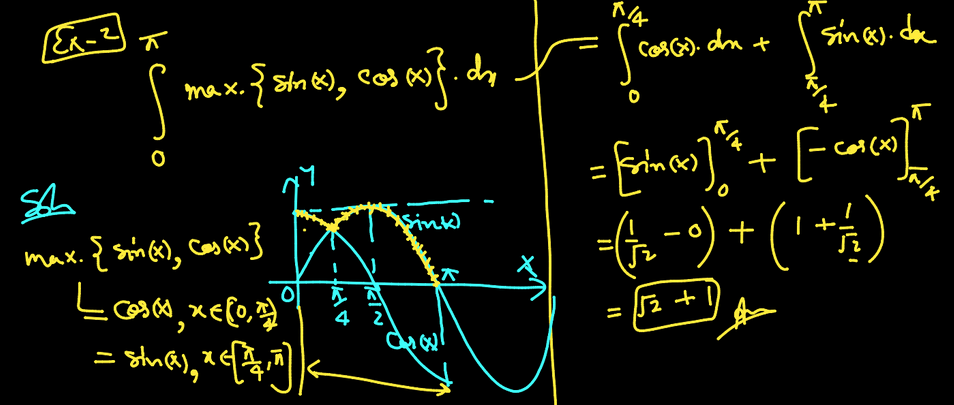 Ex-2
∫₀^π max.{sin(x), cos(x)}.dx
Soln
max.{sin(x), cos(x)}
= cos(x), x∈[0, π/4)
= sin(x), x∈[π/4, π]
Y
sin(x)
O π/4 π/2 π X
cos(x)
= ∫₀^(π/4) cos(x).dx + ∫_(π/4)^π sin(x).dx
= [sin(x)]₀^(π/4) + [-cos(x)]_(π/4)^π
= (1/√2 - 0) + (1 + 1/√2)
= √2 + 1 Ans